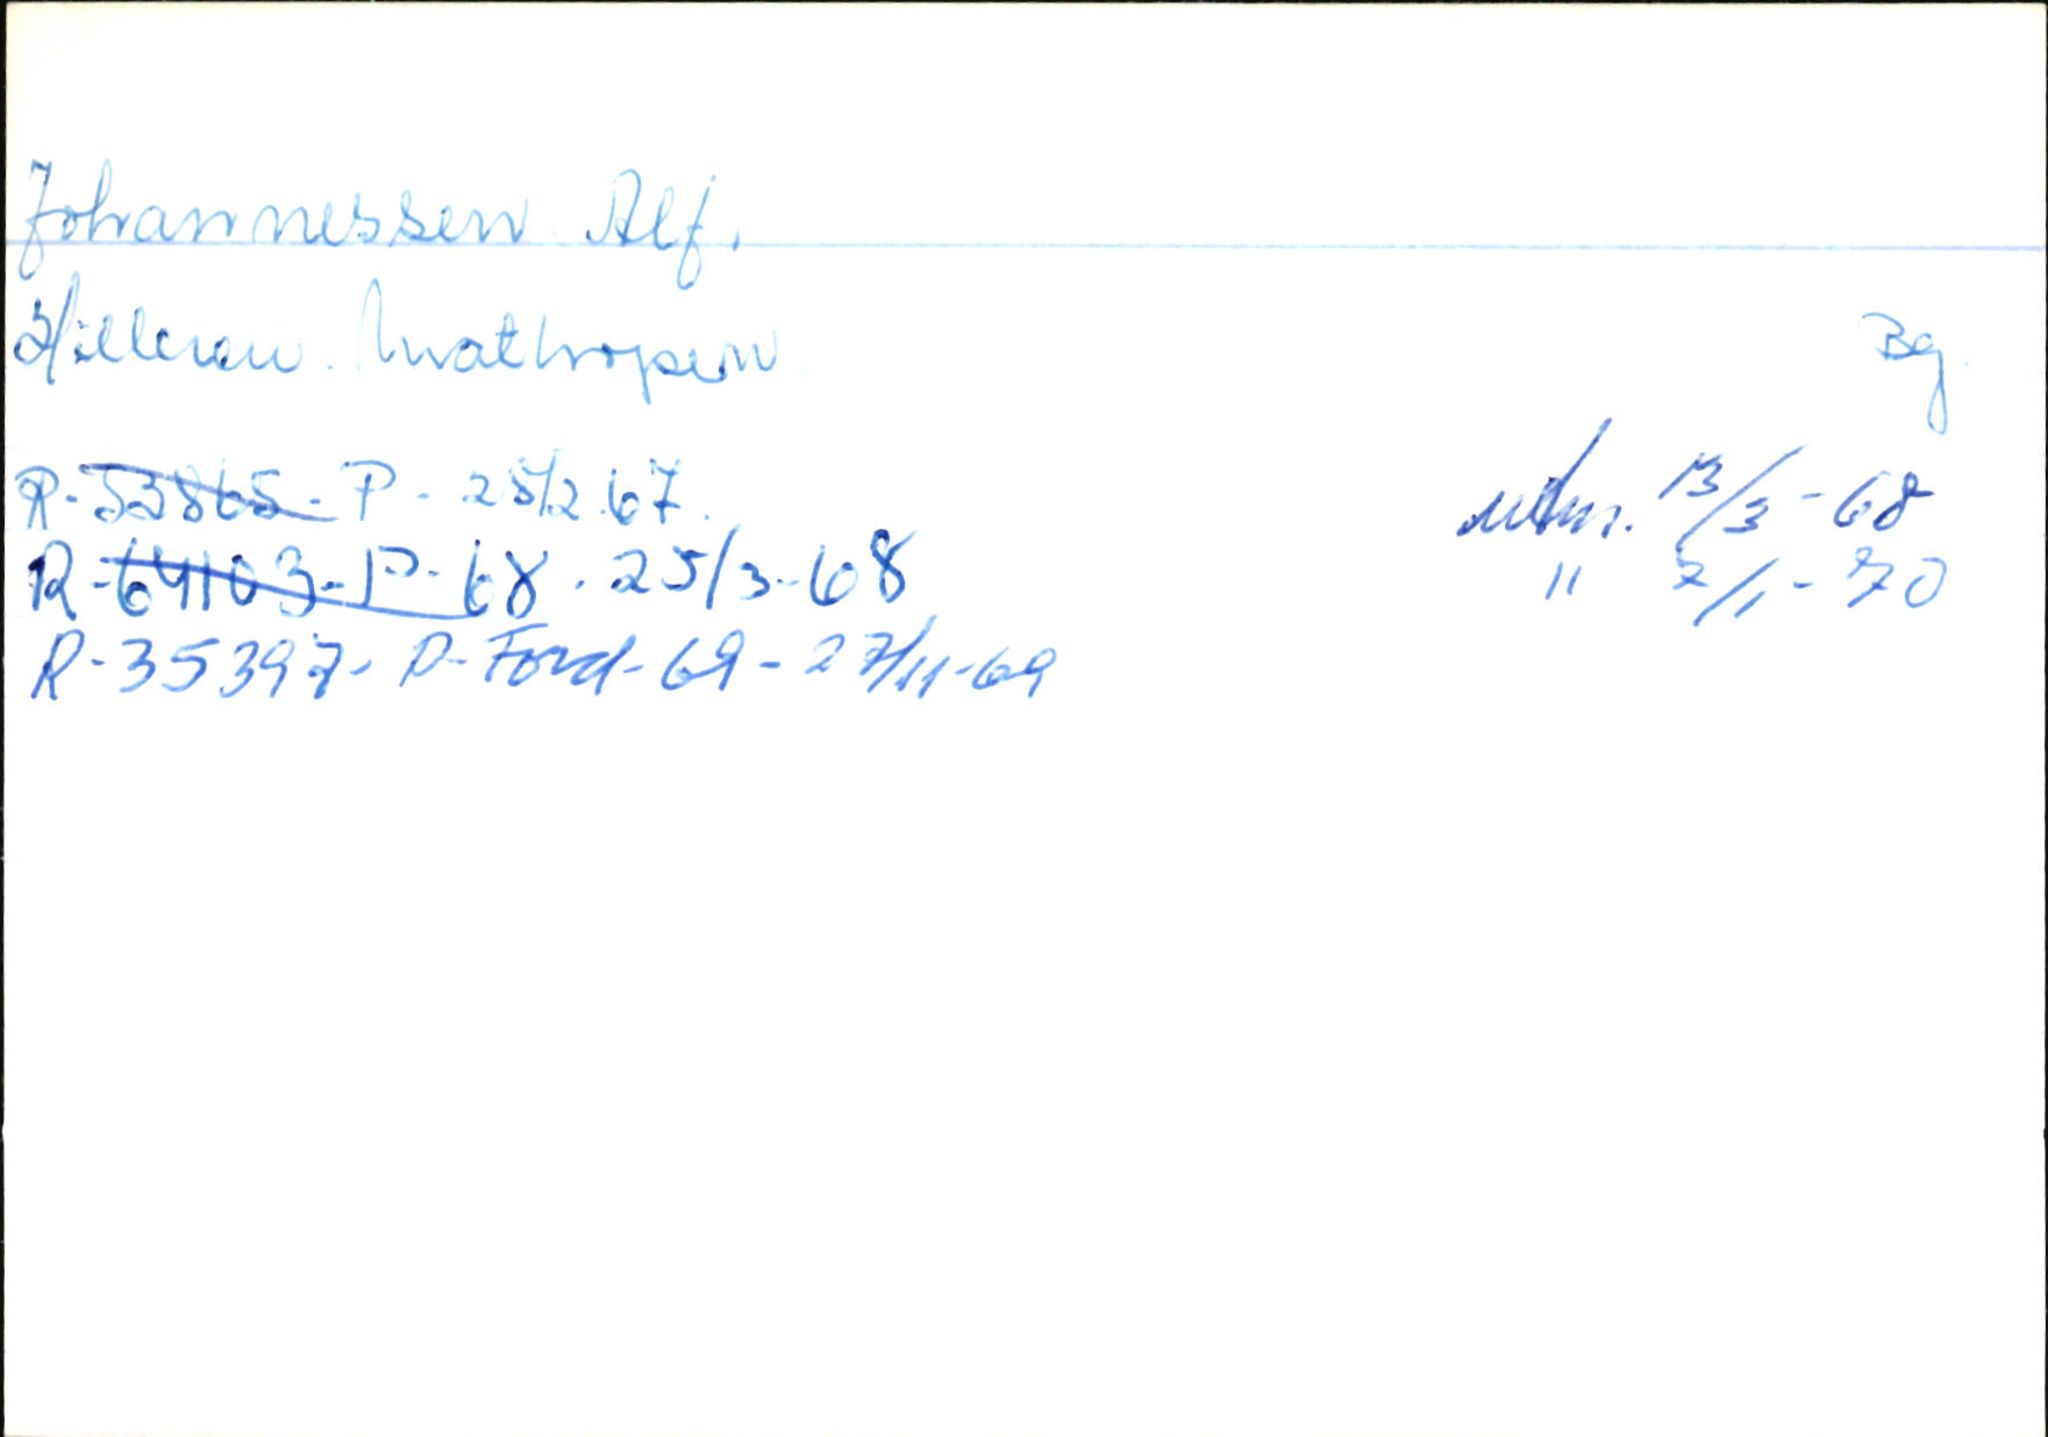 Johannessen Alf.
Hilleren. Mathopen
Bg.
R-53865-P-28/2.67.
utm. 13/3-68
R-64103-P-68.25/3-68
" 7/1-70
R-35397-P-Ford-69-27/11-69